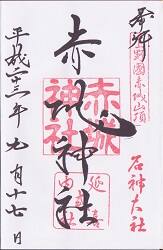 奉拝
上野國赤城山頂
名神大社
赤城神社
赤城神社
延喜式内
平成廿三年九月十七日